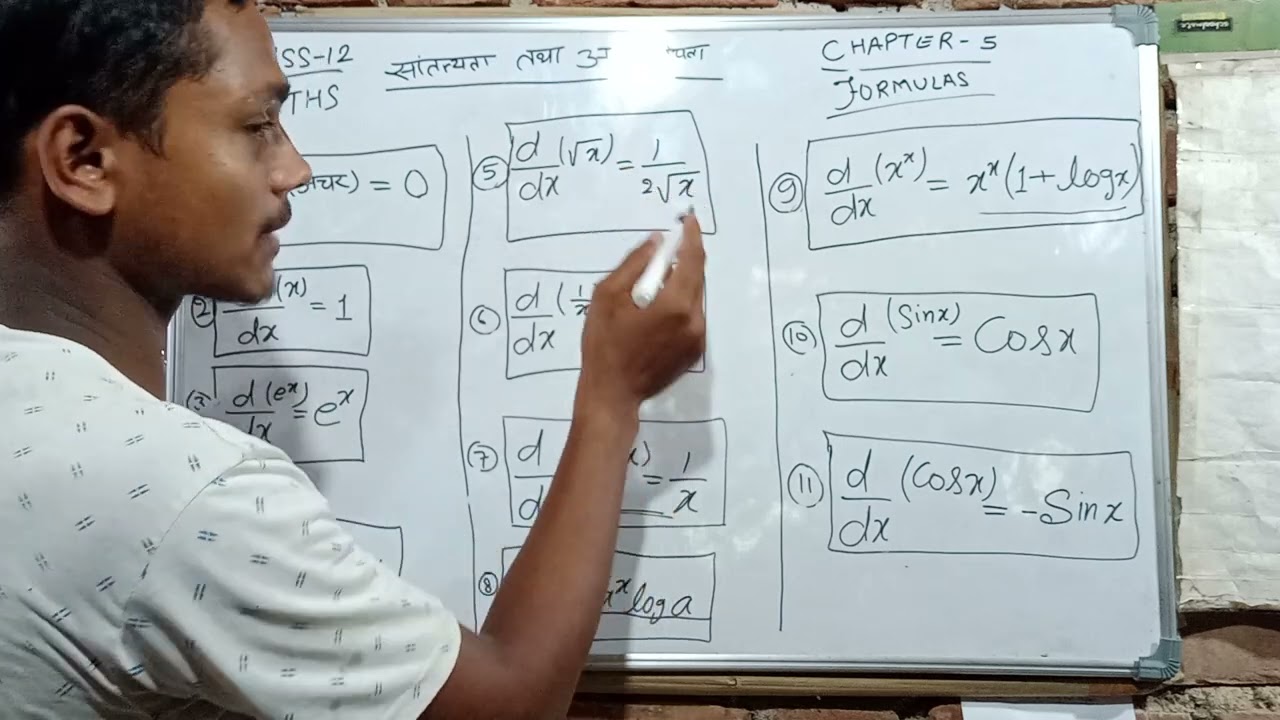 SS-12
सांतत्यता तथा
THS
CHAPTER-5
FORMULAS
= 0
② dx (x) = 1
③ d/dx (eˣ) = eˣ
⑤ d/dx (√x) = 1/2√x
⑥ d/dx (1/x
⑦ d = 1/x
⑧ ˣ log a
⑨ d/dx (xˣ) = xˣ(1+logx)
⑩ d/dx (Sinx) = Cosx
⑪ d/dx (Cosx) = -Sinx